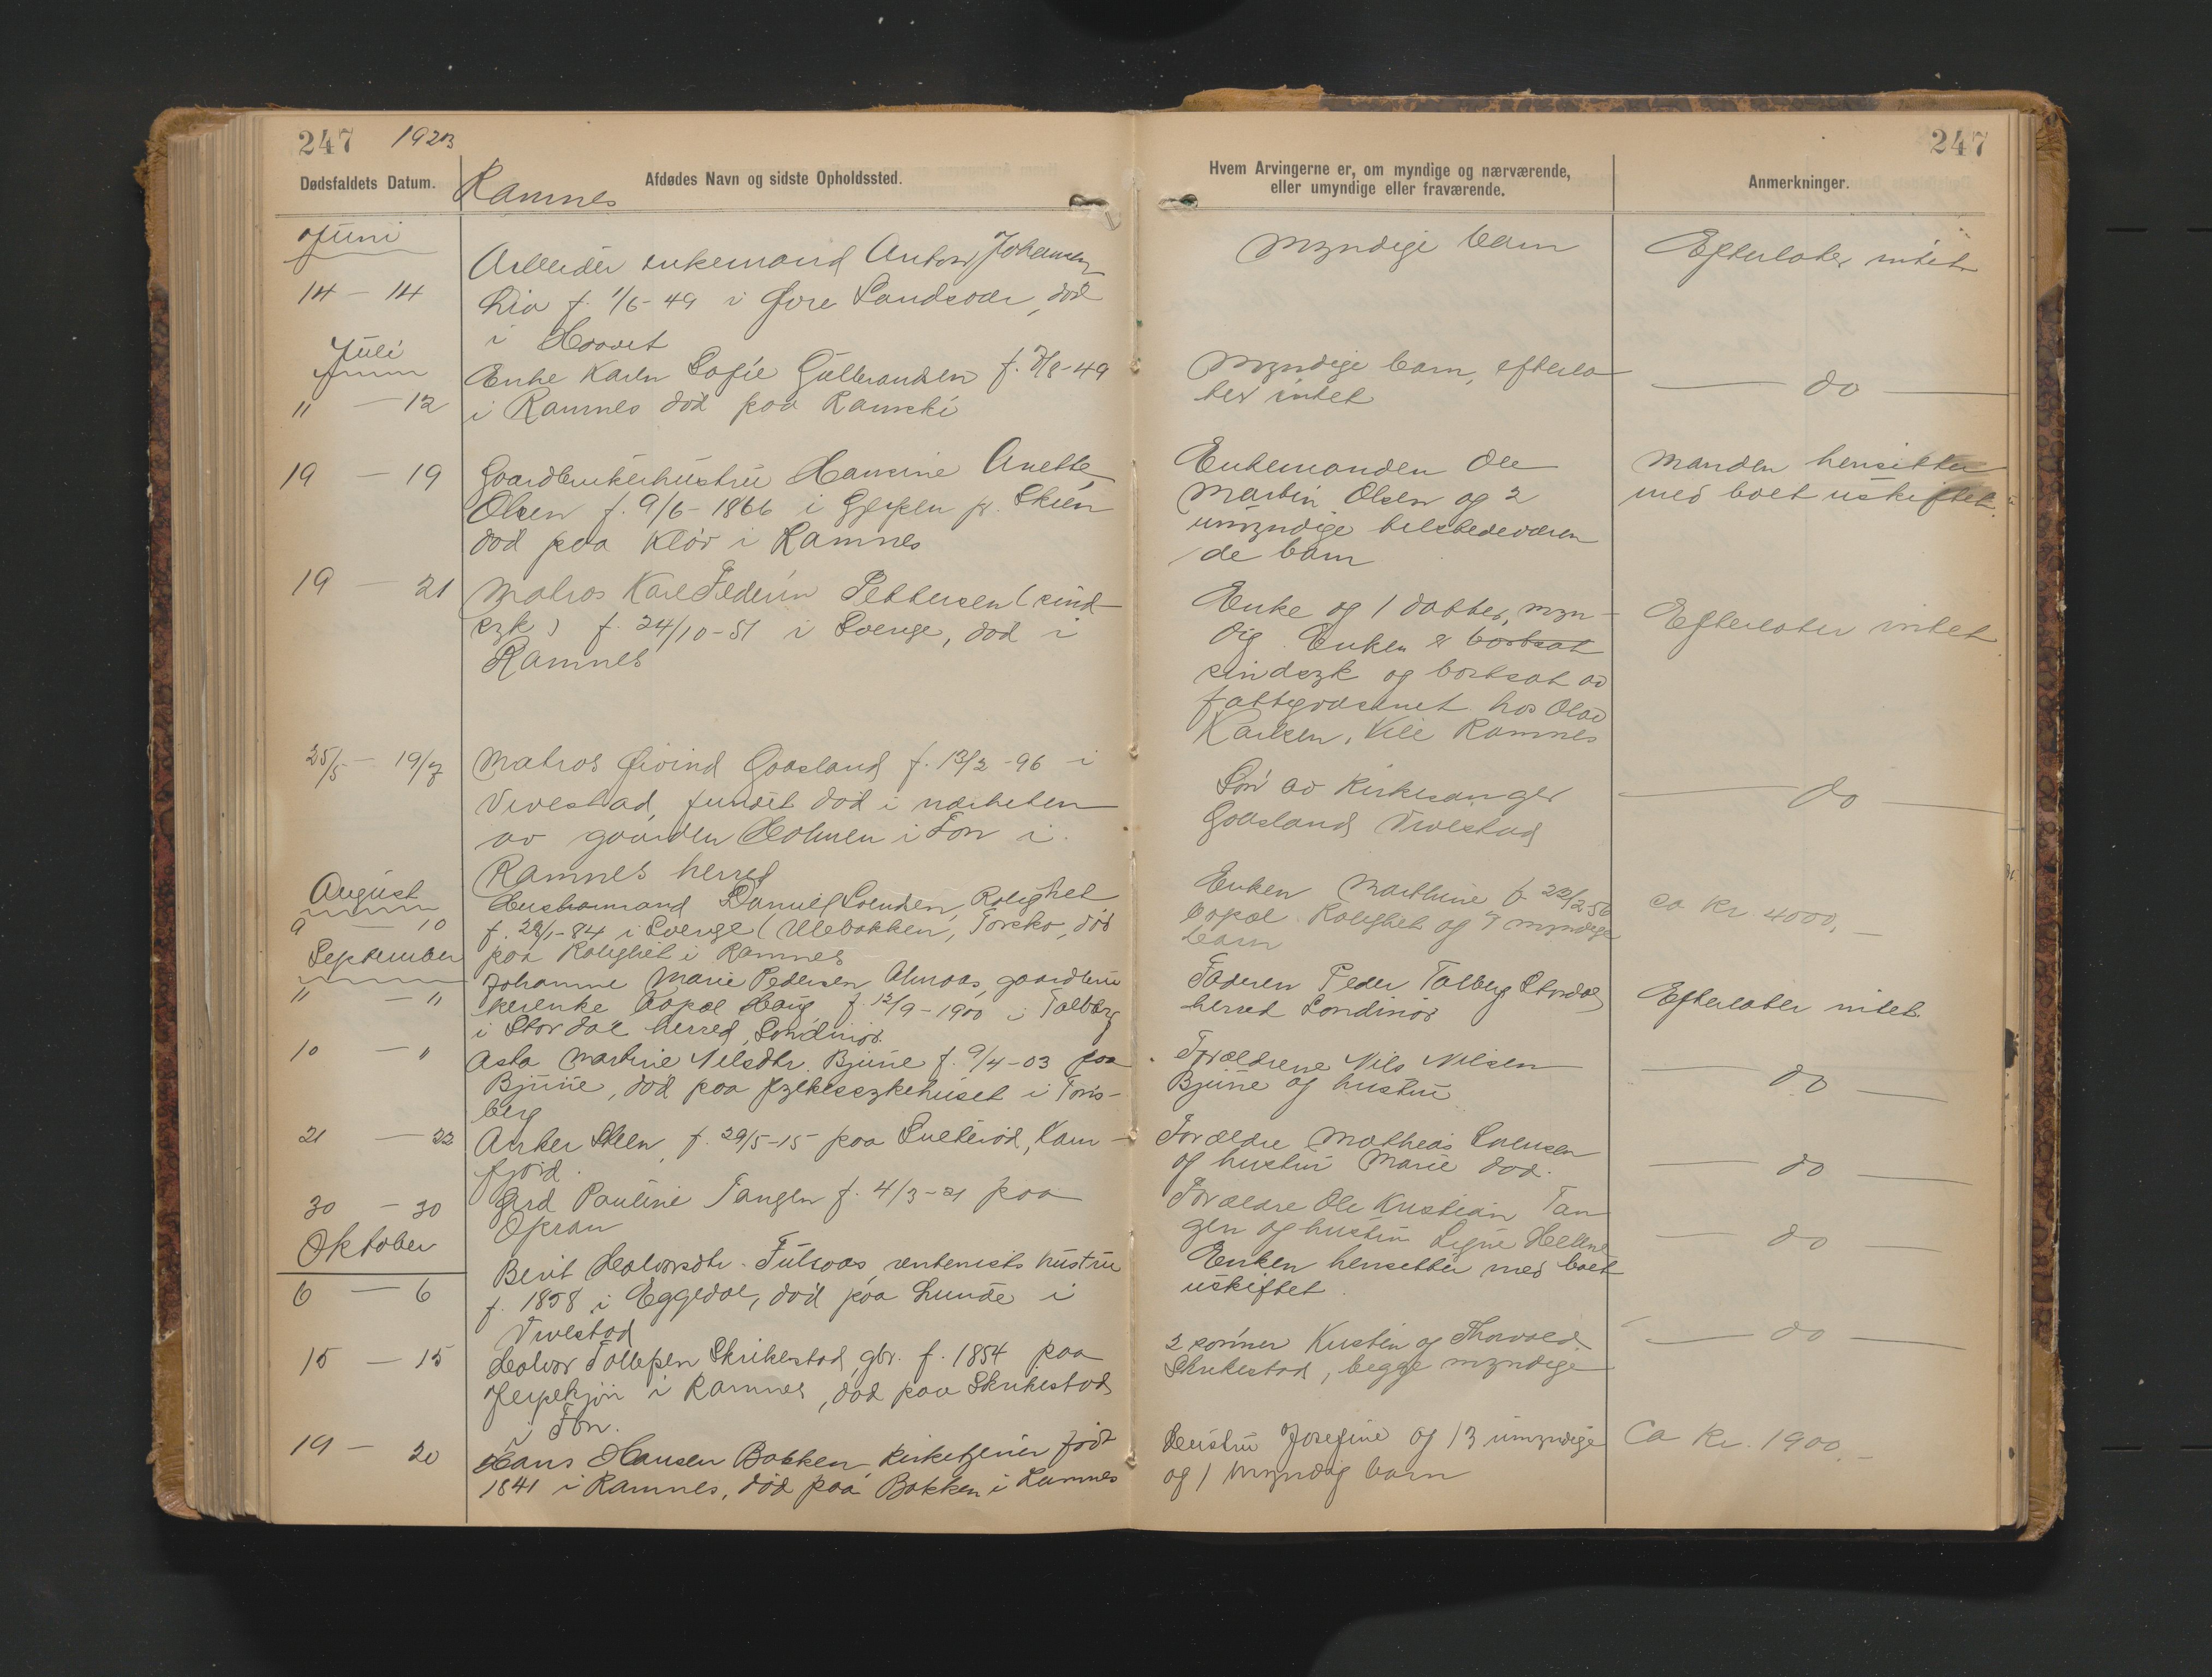 247 1923
Dødsfaldets Datum.
Ramnes
Afdødes Navn og sidste Opholdssted.
Juni
14 — 14
Arbeider enkemand Anton Johansen
Lia f. 1/6-49 i Øvre Sandsvær, død
i Hoovet
Juli
" — 12
Enke Karen Sofie Gulbrandsen f. 7/8-49
i Ramnes død paa Ramski
19 — 19
Gaardbrukerhustru Hansine Anette
Olsen f. 9/6-1866 i Gjerpen pr. Skien
død paa Kløv i Ramnes
19 — 21
Matros Karl Federin Pettersen (sind-
syk) f. 24/10-51 i Sverge, død i
Ramnes
25/5 — 19/7
Matros Øivind Goasland f. 13/2-96 i
Vivestad, fundet død i nærheten
av gaarden Holmen i Fon i
Ramnes herred
August
9 — 10
Husbomand Daniel Svendsen, Rolighet
f. 28/1-84 i Sverge (Ulebakken, Torsko, død
paa Rolighet i Ramnes
September
" — "
Johanne Marie Pedersen Almaas, gaardbru
kerenke bopæl Haug f. 12/9-1900 i Talberg
i Stordal herred, Søndmør.
10 — "
Asta Martine Nilsdtr. Bjune f. 9/4-03 paa
Bjune, død paa fylkessykehuset i Tøns-
berg
21 — 22
Anker Steen, f. 29/5-15 paa Sulterød, Kam-
fjord.
30 — 30
Gerd Pauline Tangen f. 4/3-21 paa
Opsau
Oktober
6 — 6
Berit Halvorsdtr. Fulsaas, rentenists hustru
f. 1858 i Eggedal, død paa Lunde i
Vivestad
15 — 15
Halvor Tollefsen Skrikestad, gbr. f. 1854 paa
Jerpekjøn i Ramnes, død paa Skrikestad
i Fon.
19 — 20
Hans Hansen Bakken, kirketjener født
1841 i Ramnes, død paa Bakken i Ramnes
247
Hvem Arvingerne er, om myndige og nærværende,
eller umyndige eller fraværende.
Anmerkninger.
Myndige barn
Efterlater intet
Myndige barn, efterla
ter intet
— do —
Enkemanden Ole
Martin Olsen og 2
umyndige tilstedeværen
de barn
Manden hensitter
med boet uskiftet.
Enke og 1 datter, myn-
dig. Enken er bortsat
sindsyk og bortsat av
fattigvæsenet hos Olav
Karlsen, Vile Ramnes
Efterlater intet.
Søn av Kirkesanger
Goasland Vivestad
— do —
Enken Marthine f. 22/2-56
bopæl Rolighet og 7 myndige
barn
ca kr 4000.—
Faderen Peder Talberg Stordal
herred Søndmør
Efterlater intet.
Forældrene Nils Nilsen
Bjune og hustru
— do —
Forældre Mathias Svensen
og hustru Marie død.
— do —
Forældre Ole Kristian Tan
gen og hustru Signe Hellene
— do —
Enken hensitter med boet
uskiftet.
2 sønner Kristen og Thorvald
Skrikestad, begge myndige
— do —
Hustru Josefine og 13 umyndige
og 1 myndig barn
Ca Kr. 1900.—